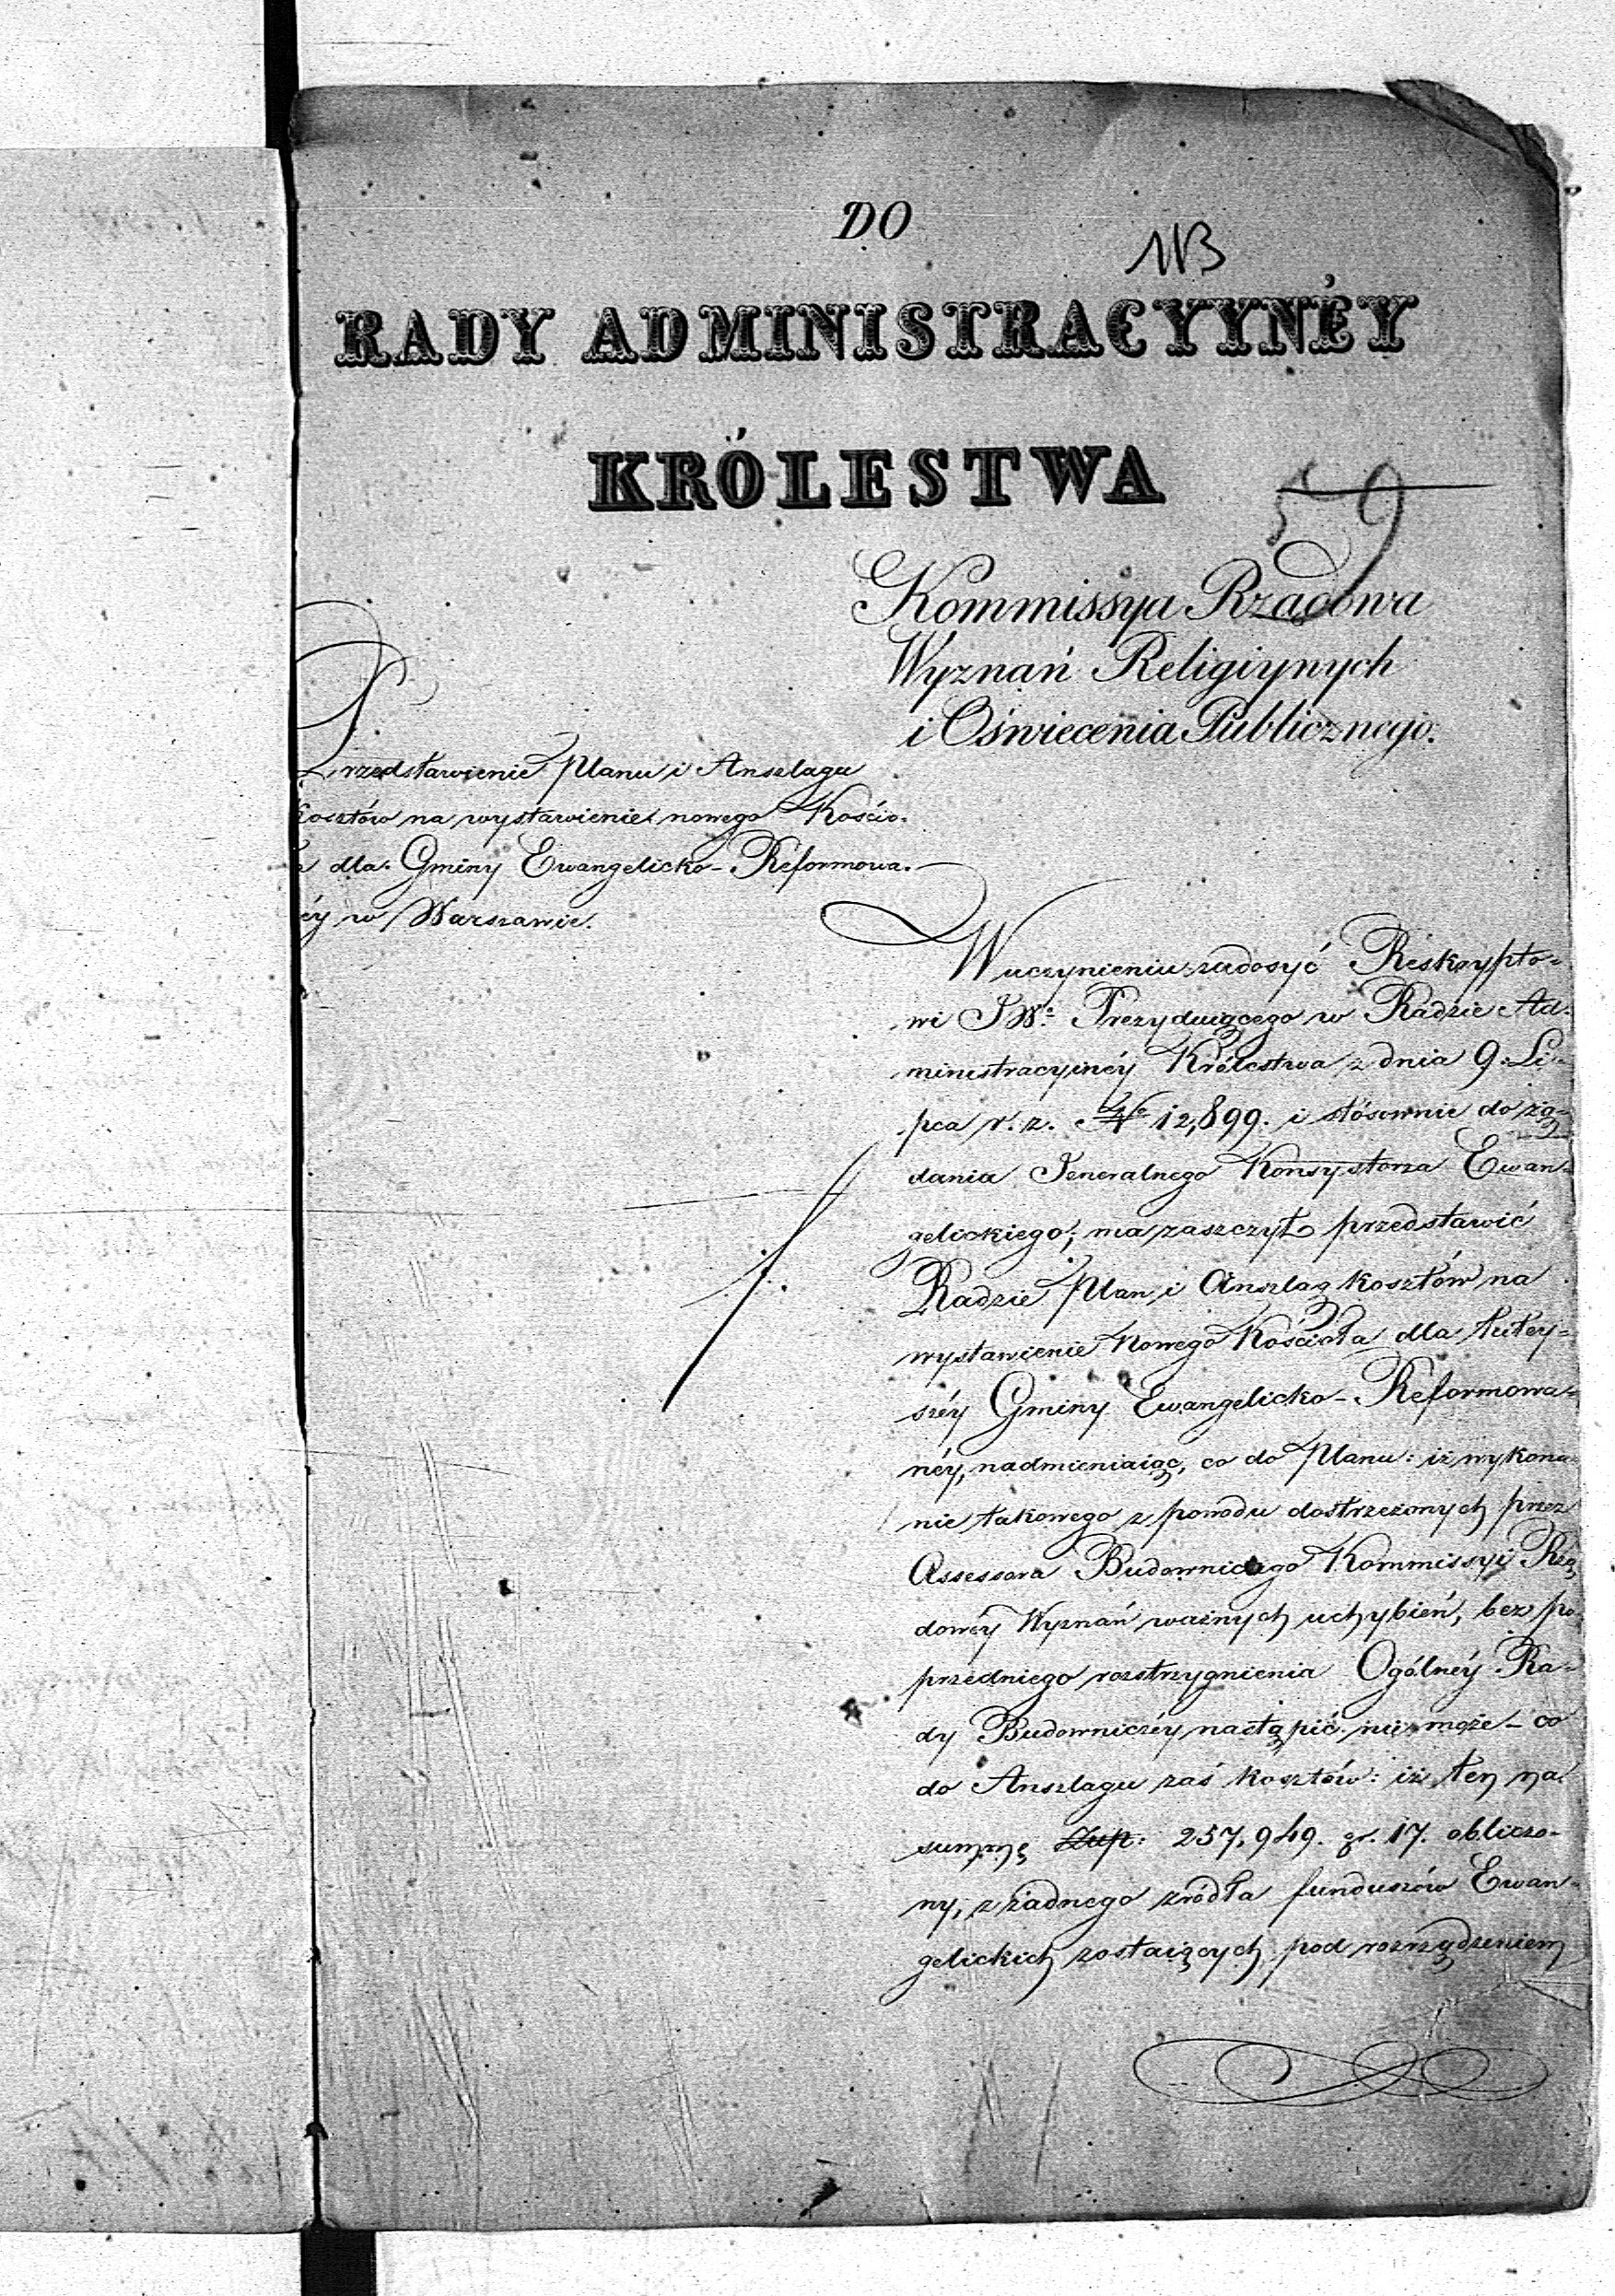 DO
113
RADY ADMINISTRACYYNÉY
KRÓLESTWA
59
Kommissya Rządowa
Wyznań Religiynych
i Oświecenia Publicznego.
Przedstawienie Planu i Anszlagu
kosztów na wystawienie nowego Kościo-
ła dla Gminy Ewangelicko-Reformowa-
éy w Warszawie.
W uczynieniu zadosyć Reskrypto-
wi JW. Prezyduiącego w Radzie Ad-
ministracyinéy Królestwa z dnia 9. Li-
pca r. z. No 12,899. i stósownie do żą-
dania Jeneralnego Konsystorza Ewan-
gelickiego, ma zaszczyt przedstawić
Radzie Plan i Anszlag kosztów na
wystawienie Nowego Kościoła dla tutey-
széy Gminy Ewangelicko-Reformowa-
néy, nadmieniaiąc, co do Planu: iż wykona-
nie takowego z powodu dostrzeżonych przez
Assessora Budowniczego Kommissyi Rzą-
dowéy Wyznań ważnych uchybień, bez po-
przedniego rozstrzygnienia Ogólnéy Ra-
dy Budowniczéy nastąpić nie może - co
do Anszlagu zaś kosztów: iż ten na
summę Złp: 257,949. gr. 17. obliczo-
ny, z żadnego źródła funduszów Ewan-
gelickich zostaiących pod rozrządzeniem